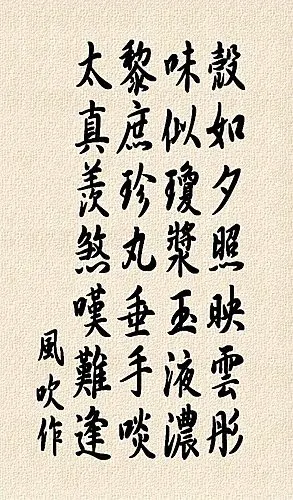 殼如夕照映雲彤
味似瓊漿玉液濃
黎庶珍丸垂手啖
太真羨煞嘆難逢
風吹作